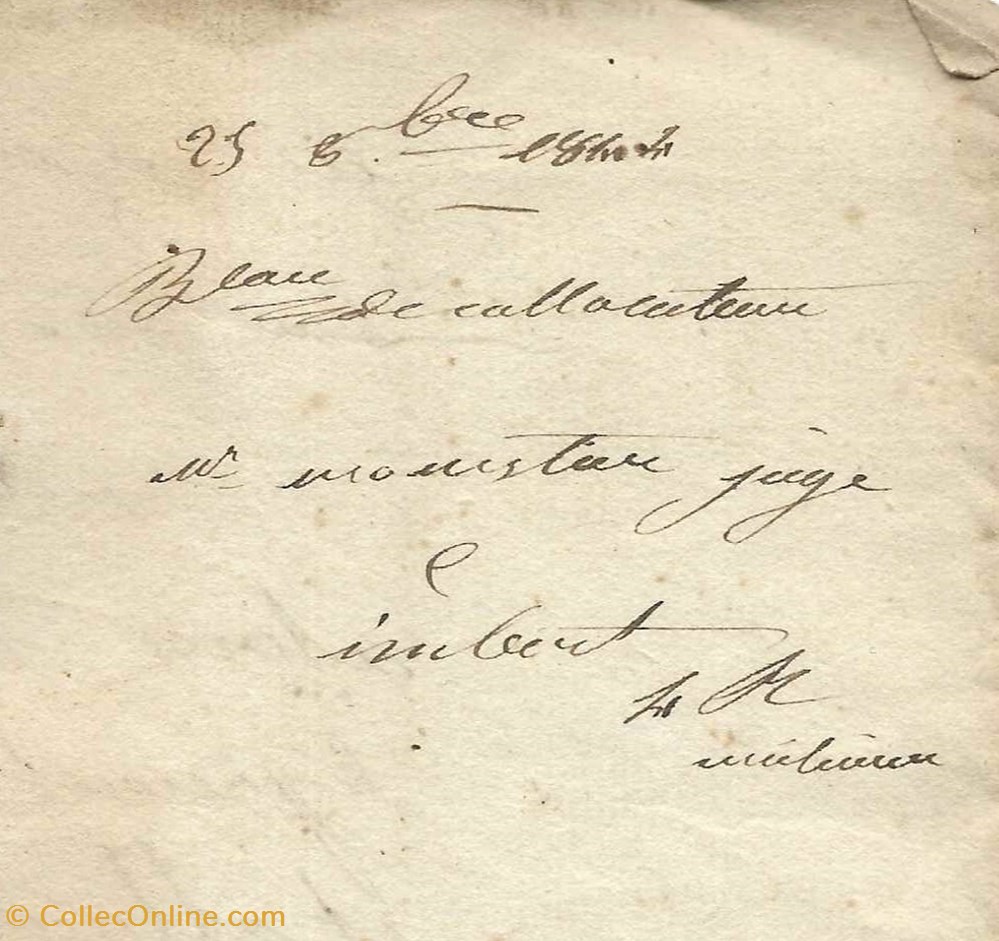 25 8.bre 1844
de collocation
Mr monestier juge
C
imbert
4 R
© CollecOnline.com